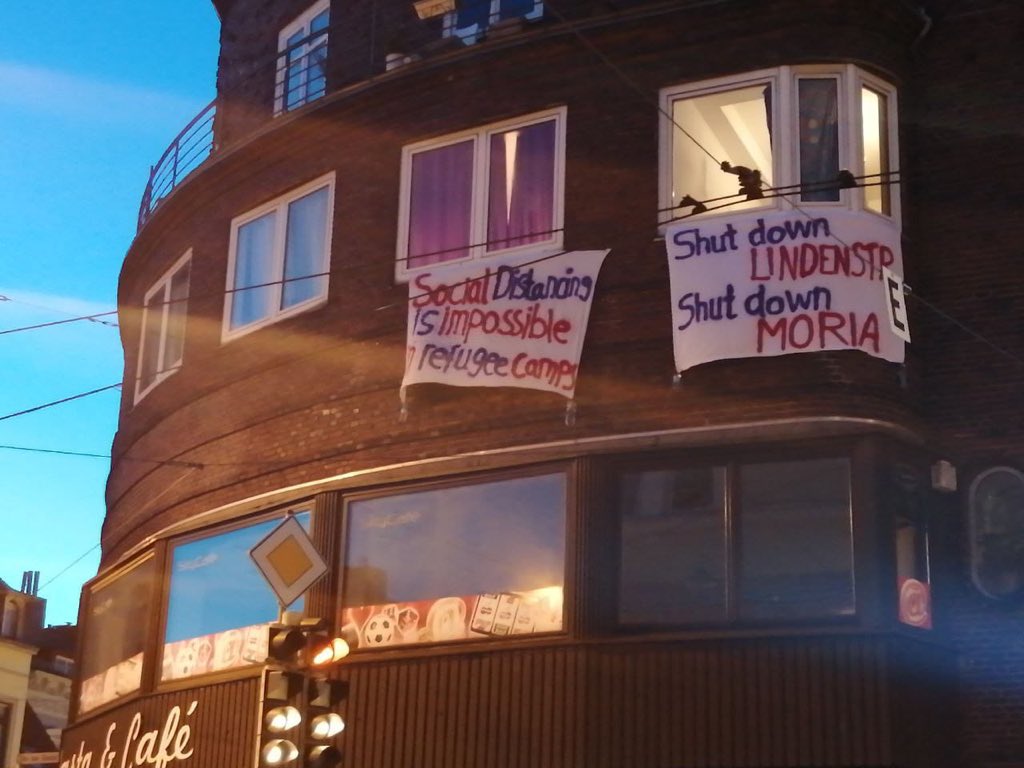 Social Distancing
is impossible
refugee camps
Shut down
LINDENSTR
Shut down
MORIA
E
& Café